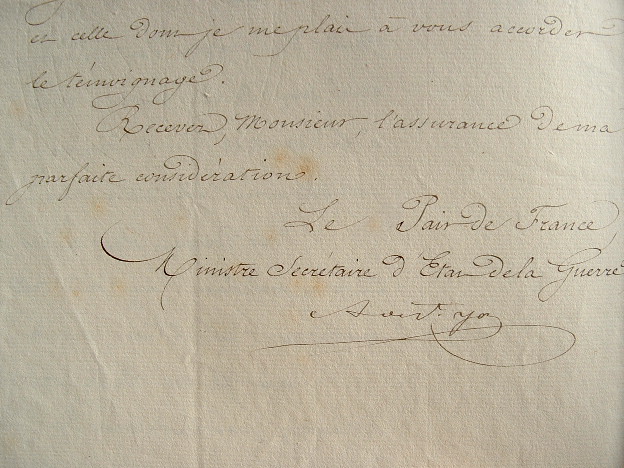 et celle dont je me plais à vous accorder
le témoignage.
Recevez, Monsieur, l'assurance de ma
parfaite considération.
Le Pair de France,
Ministre Secrétaire d'Etat de la Guerre